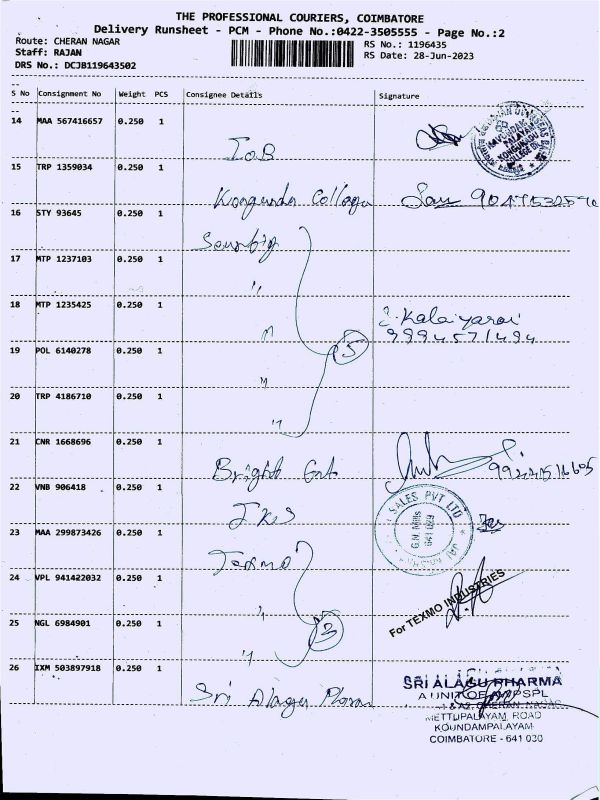 THE PROFESSIONAL COURIERS, COIMBATORE
Delivery Runsheet - PCM - Phone No.:0422-3505555 - Page No.:2
Route: CHERAN NAGAR
Staff: RAJAN
DRS No.: DCJB119643502
RS No.: 1196435
RS Date: 28-Jun-2023
S No Consignment No Weight PCS Consignee Details Signature
14 MAA 567416657 0.250 1
I.O.B
15 TRP 1359034 0.250 1
Kongundu College
16 STY 93645 0.250 1
17 MTP 1237103 0.250 1
"
18 MTP 1235425 0.250 1
"
Kalaiyarasi
9994571494
5
19 POL 6140278 0.250 1
"
20 TRP 4186710 0.250 1
"
21 CNR 1668696 0.250 1
Bright
22 VNB 906418 0.250 1
SALES PVT LTD
G.N. Mills
641 029
23 MAA 299873426 0.250 1
Texmo
24 VPL 941422032 0.250 1
"
For TEXMO INDUSTRIES
25 NGL 6984901 0.250 1
"
3
26 IXM 503897918 0.250 1
Sri Alagu
SRI ALAGU PHARMA
A UNIT OF
METTUPALAYAM ROAD
KOUNDAMPALAYAM
COIMBATORE - 641 030